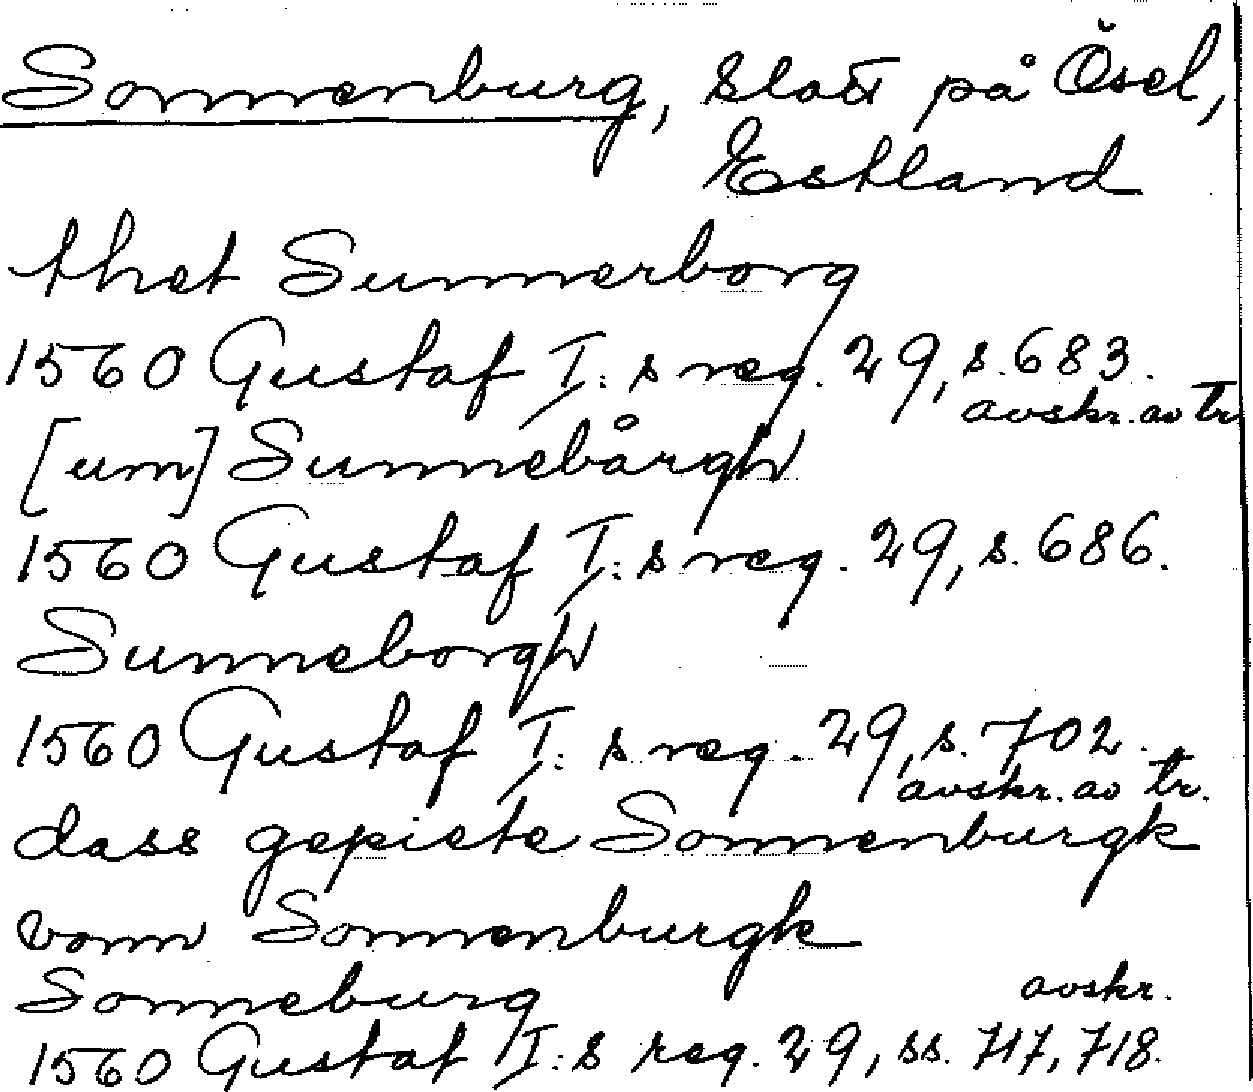 Sonnenburg, slott på Ösel,
Estland
thet Sunnerborg
1560 Gustaf I:s reg. 29, s. 683.
avskr. av tr.
[um] Sunnebårgh
1560 Gustaf I:s reg. 29, s. 686.
Sunneborgh
1560 Gustaf I:s reg. 29, s. 702.
avskr. av tr.
dass gepiete Sonnenburgk
vonn Sonnenburgk
Sonneburg
avskr.
1560 Gustaf I:s reg. 29, ss. 717, 718.